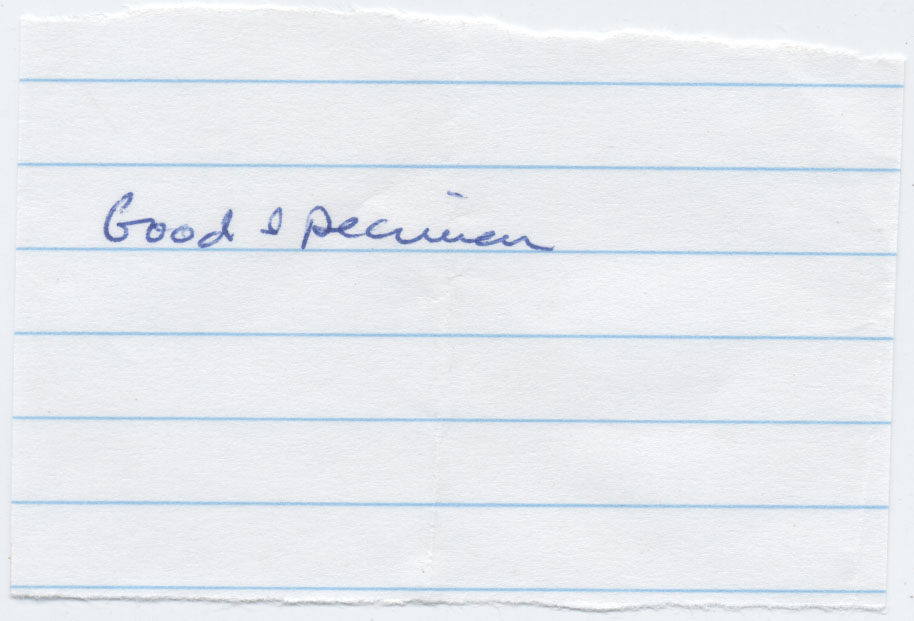 Good specimen